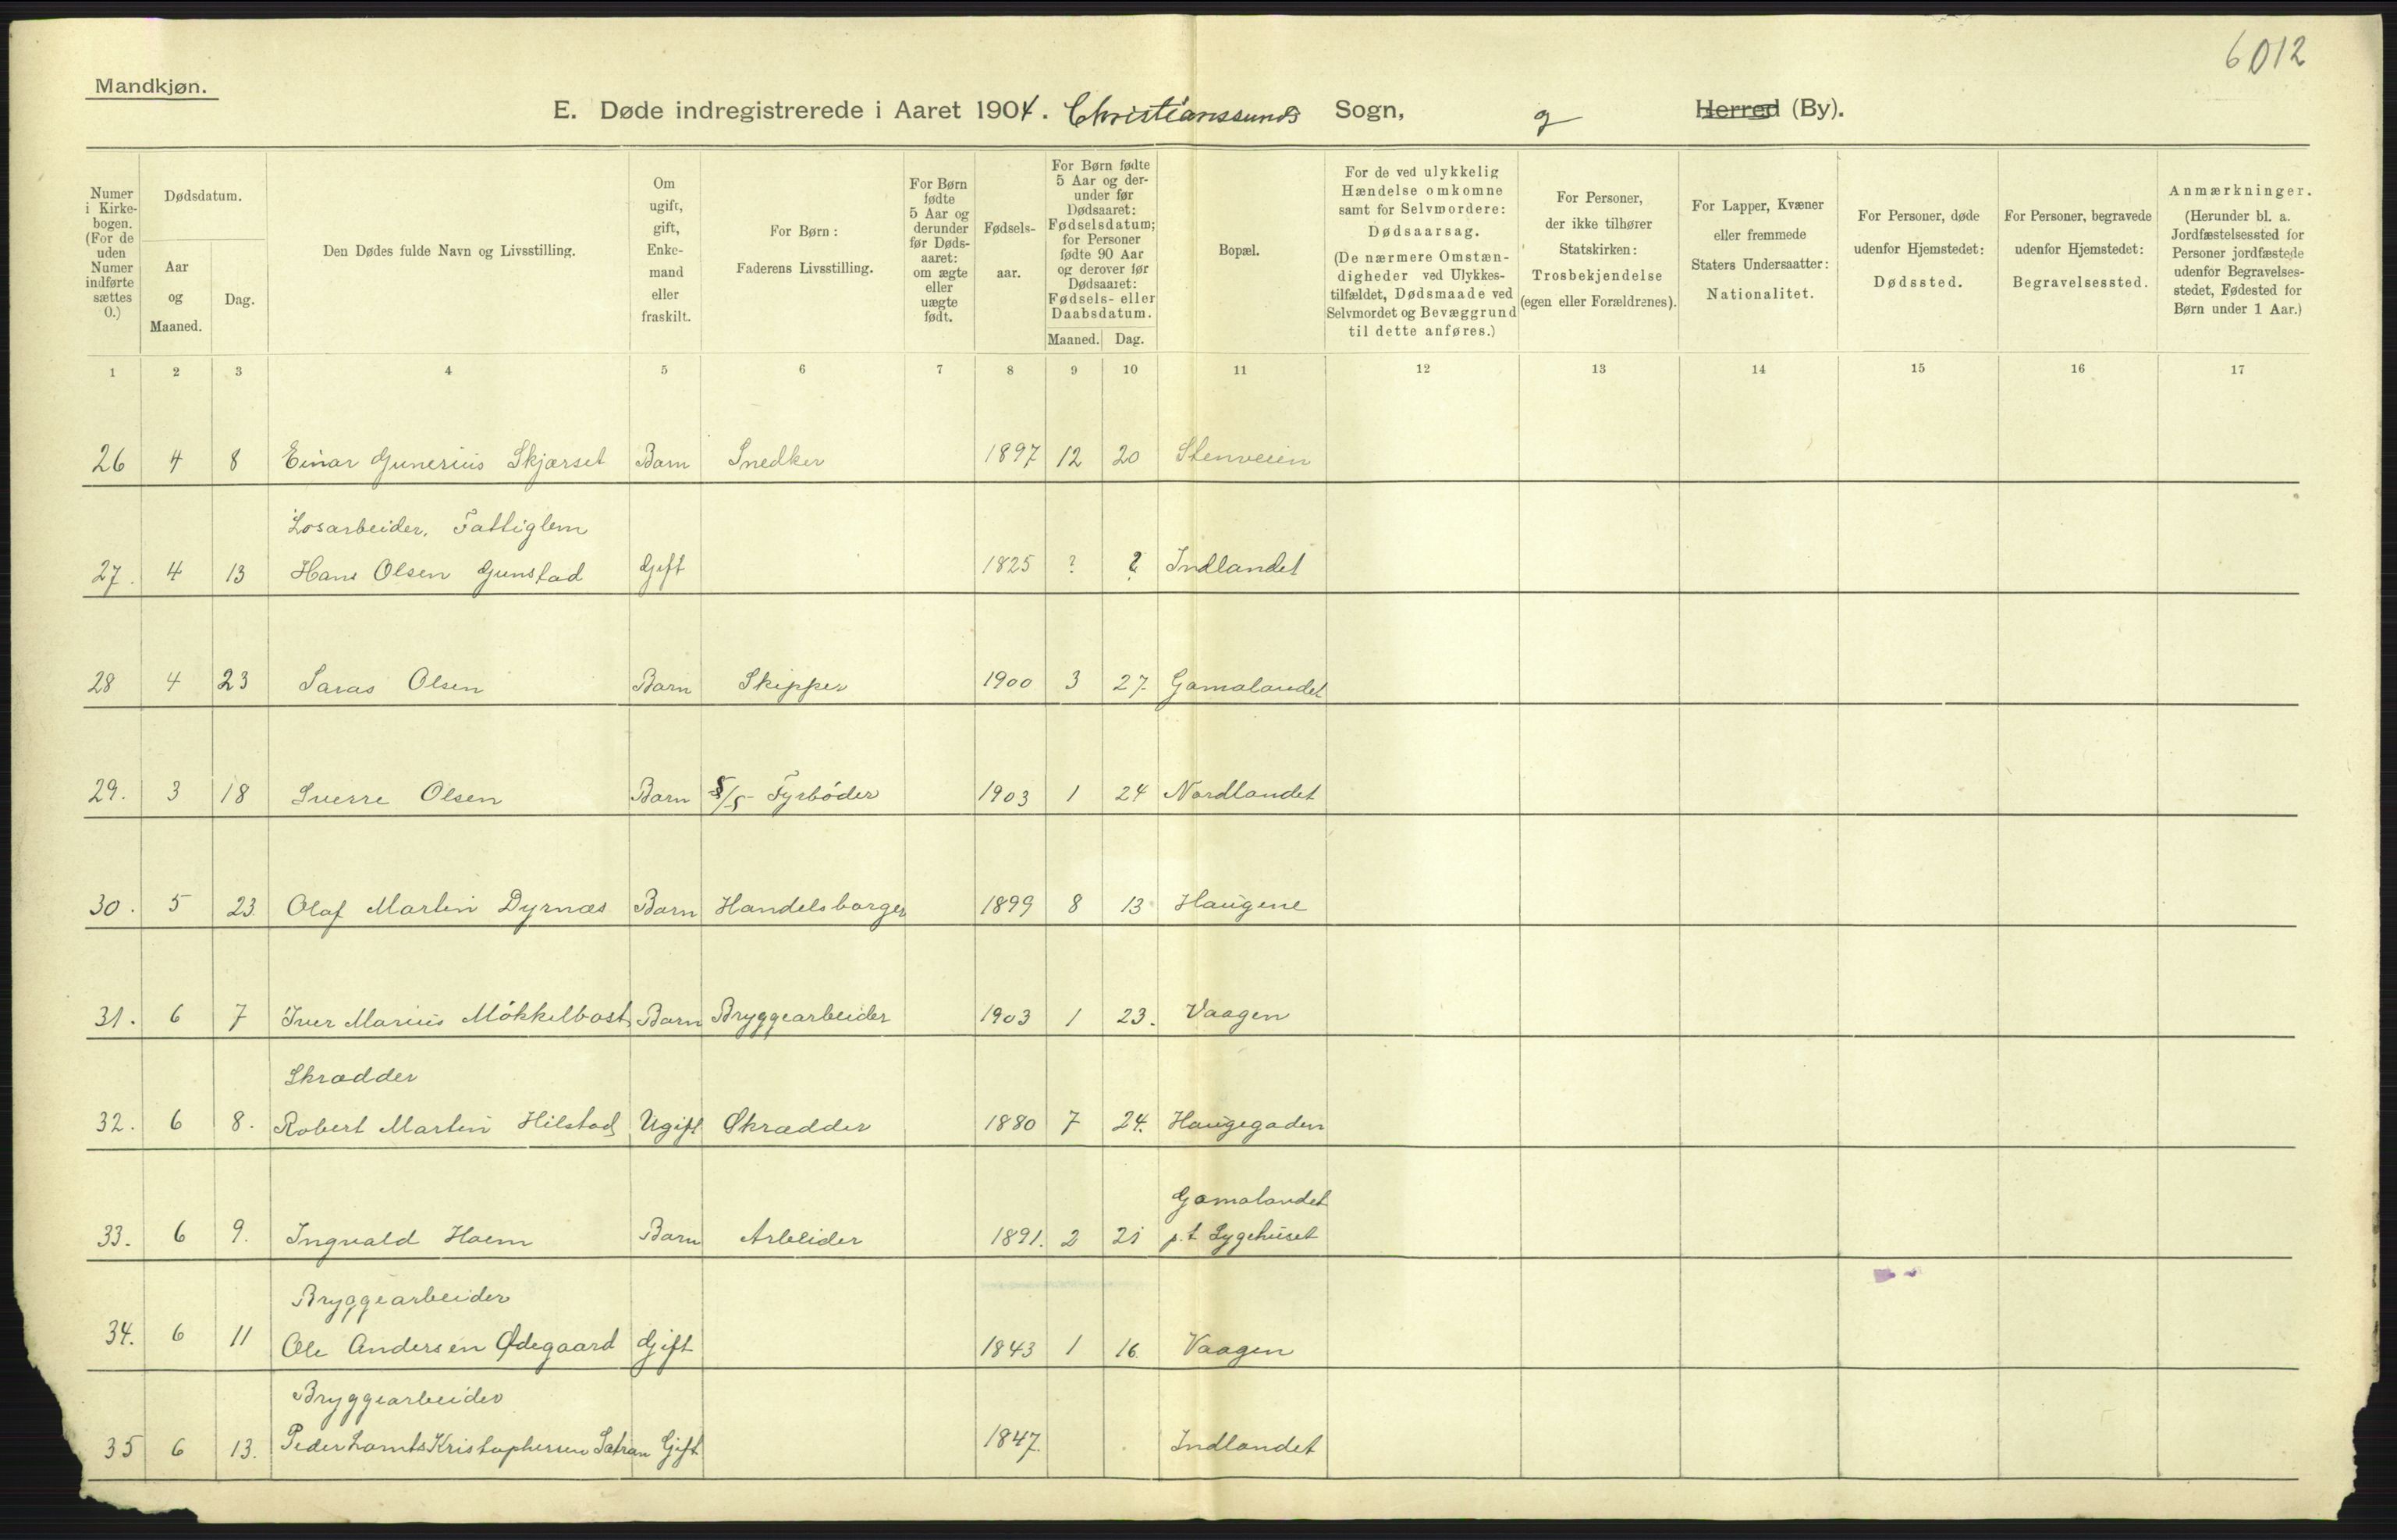 6012
Mandkjøn.
E. Døde indregistrerede i Aaret 1904. Christianssunds Sogn, g Herred (By).
Numer i Kirkebogen. (For de uden Numer indførte sættes 0.)
Dødsdatum.
Aar og Maaned.
Dag.
Den Dødes fulde Navn og Livsstilling.
Om ugift, gift, Enkemand eller fraskilt.
For Børn: Faderens Livsstilling.
For Børn fødte 5 Aar og derunder før Dødsaaret: om ægte eller uægte født.
Fødselsaar.
For Børn fødte 5 Aar og derunder før Dødsaaret: Fødselsdatum; for Personer fødte 90 Aar og derover før Dødsaaret: Fødsels- eller Daabsdatum.
Maaned. Dag.
Bopæl.
For de ved ulykkelig Hændelse omkomne samt for Selvmordere: Dødsaarsag. (De nærmere Omstændigheder ved Ulykkestilfældet, Dødsmaade ved Selvmordet og Bevæggrund til dette anføres.)
For Personer, der ikke tilhører Statskirken: Trosbekjendelse (egen eller Forældrenes).
For Lapper, Kvæner eller fremmede Staters Undersaatter: Nationalitet.
For Personer, døde udenfor Hjemstedet: Dødssted.
For Personer, begravede udenfor Hjemstedet: Begravelsessted.
Anmærkninger. (Herunder bl. a. Jordfæstelsessted for Personer jordfæstede udenfor Begravelsesstedet, Fødested for Børn under 1 Aar.)
1 2 3 4 5 6 7 8 9 10 11 12 13 14 15 16 17
26 4 8 Einar Gunerius Skjærset Barn Snedker 1897 12 20 Stenveien
Losarbeider, Fattiglem
27. 4 13 Hans Olsen Gunstad Gift 1825 ? ? Indlandet
28 4 23 Saras Olsen Barn Skipper 1900 3 27. Gomalandet
29. 3 18 Sverre Olsen Barn S/S Fyrbøder 1903 1 24 Nordlandet
30. 5 23 Olaf Martin Dyrnæs Barn Handelsborger 1899 8 13 Haugene
31. 6 7 Iver Marius Møkkelbost Barn Bryggearbeider 1903 1 23. Vaagen
Skrædder
32. 6 8. Robert Martin Hilstad Ugift Skrædder 1880 7 24. Haugegaden
Gomalandet
33. 6 9. Ingvald Hoem Barn Arbeider 1891. 2 21 p.t. Sygehuset
Bryggearbeider
34. 6 11 Ole Andersen Ødegaard Gift 1843 1 16. Vaagen
Bryggearbeider
35 6 13. Peder Kristophersen Gift 1847. Indlandet